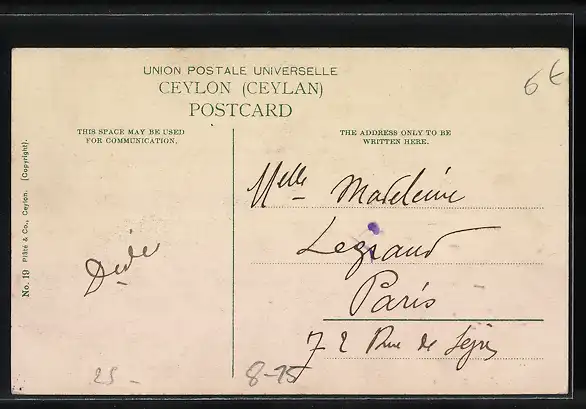 UNION POSTALE UNIVERSELLE
CEYLON (CEYLAN)
POSTCARD
6€
THIS SPACE MAY BE USED
FOR COMMUNICATION.
THE ADDRESS ONLY TO BE
WRITTEN HERE.
Melle Madeleine
Legrand
Paris
72 Rue de
No. 19 Plâté & Co., Ceylon. (Copyright).
25-
8-75